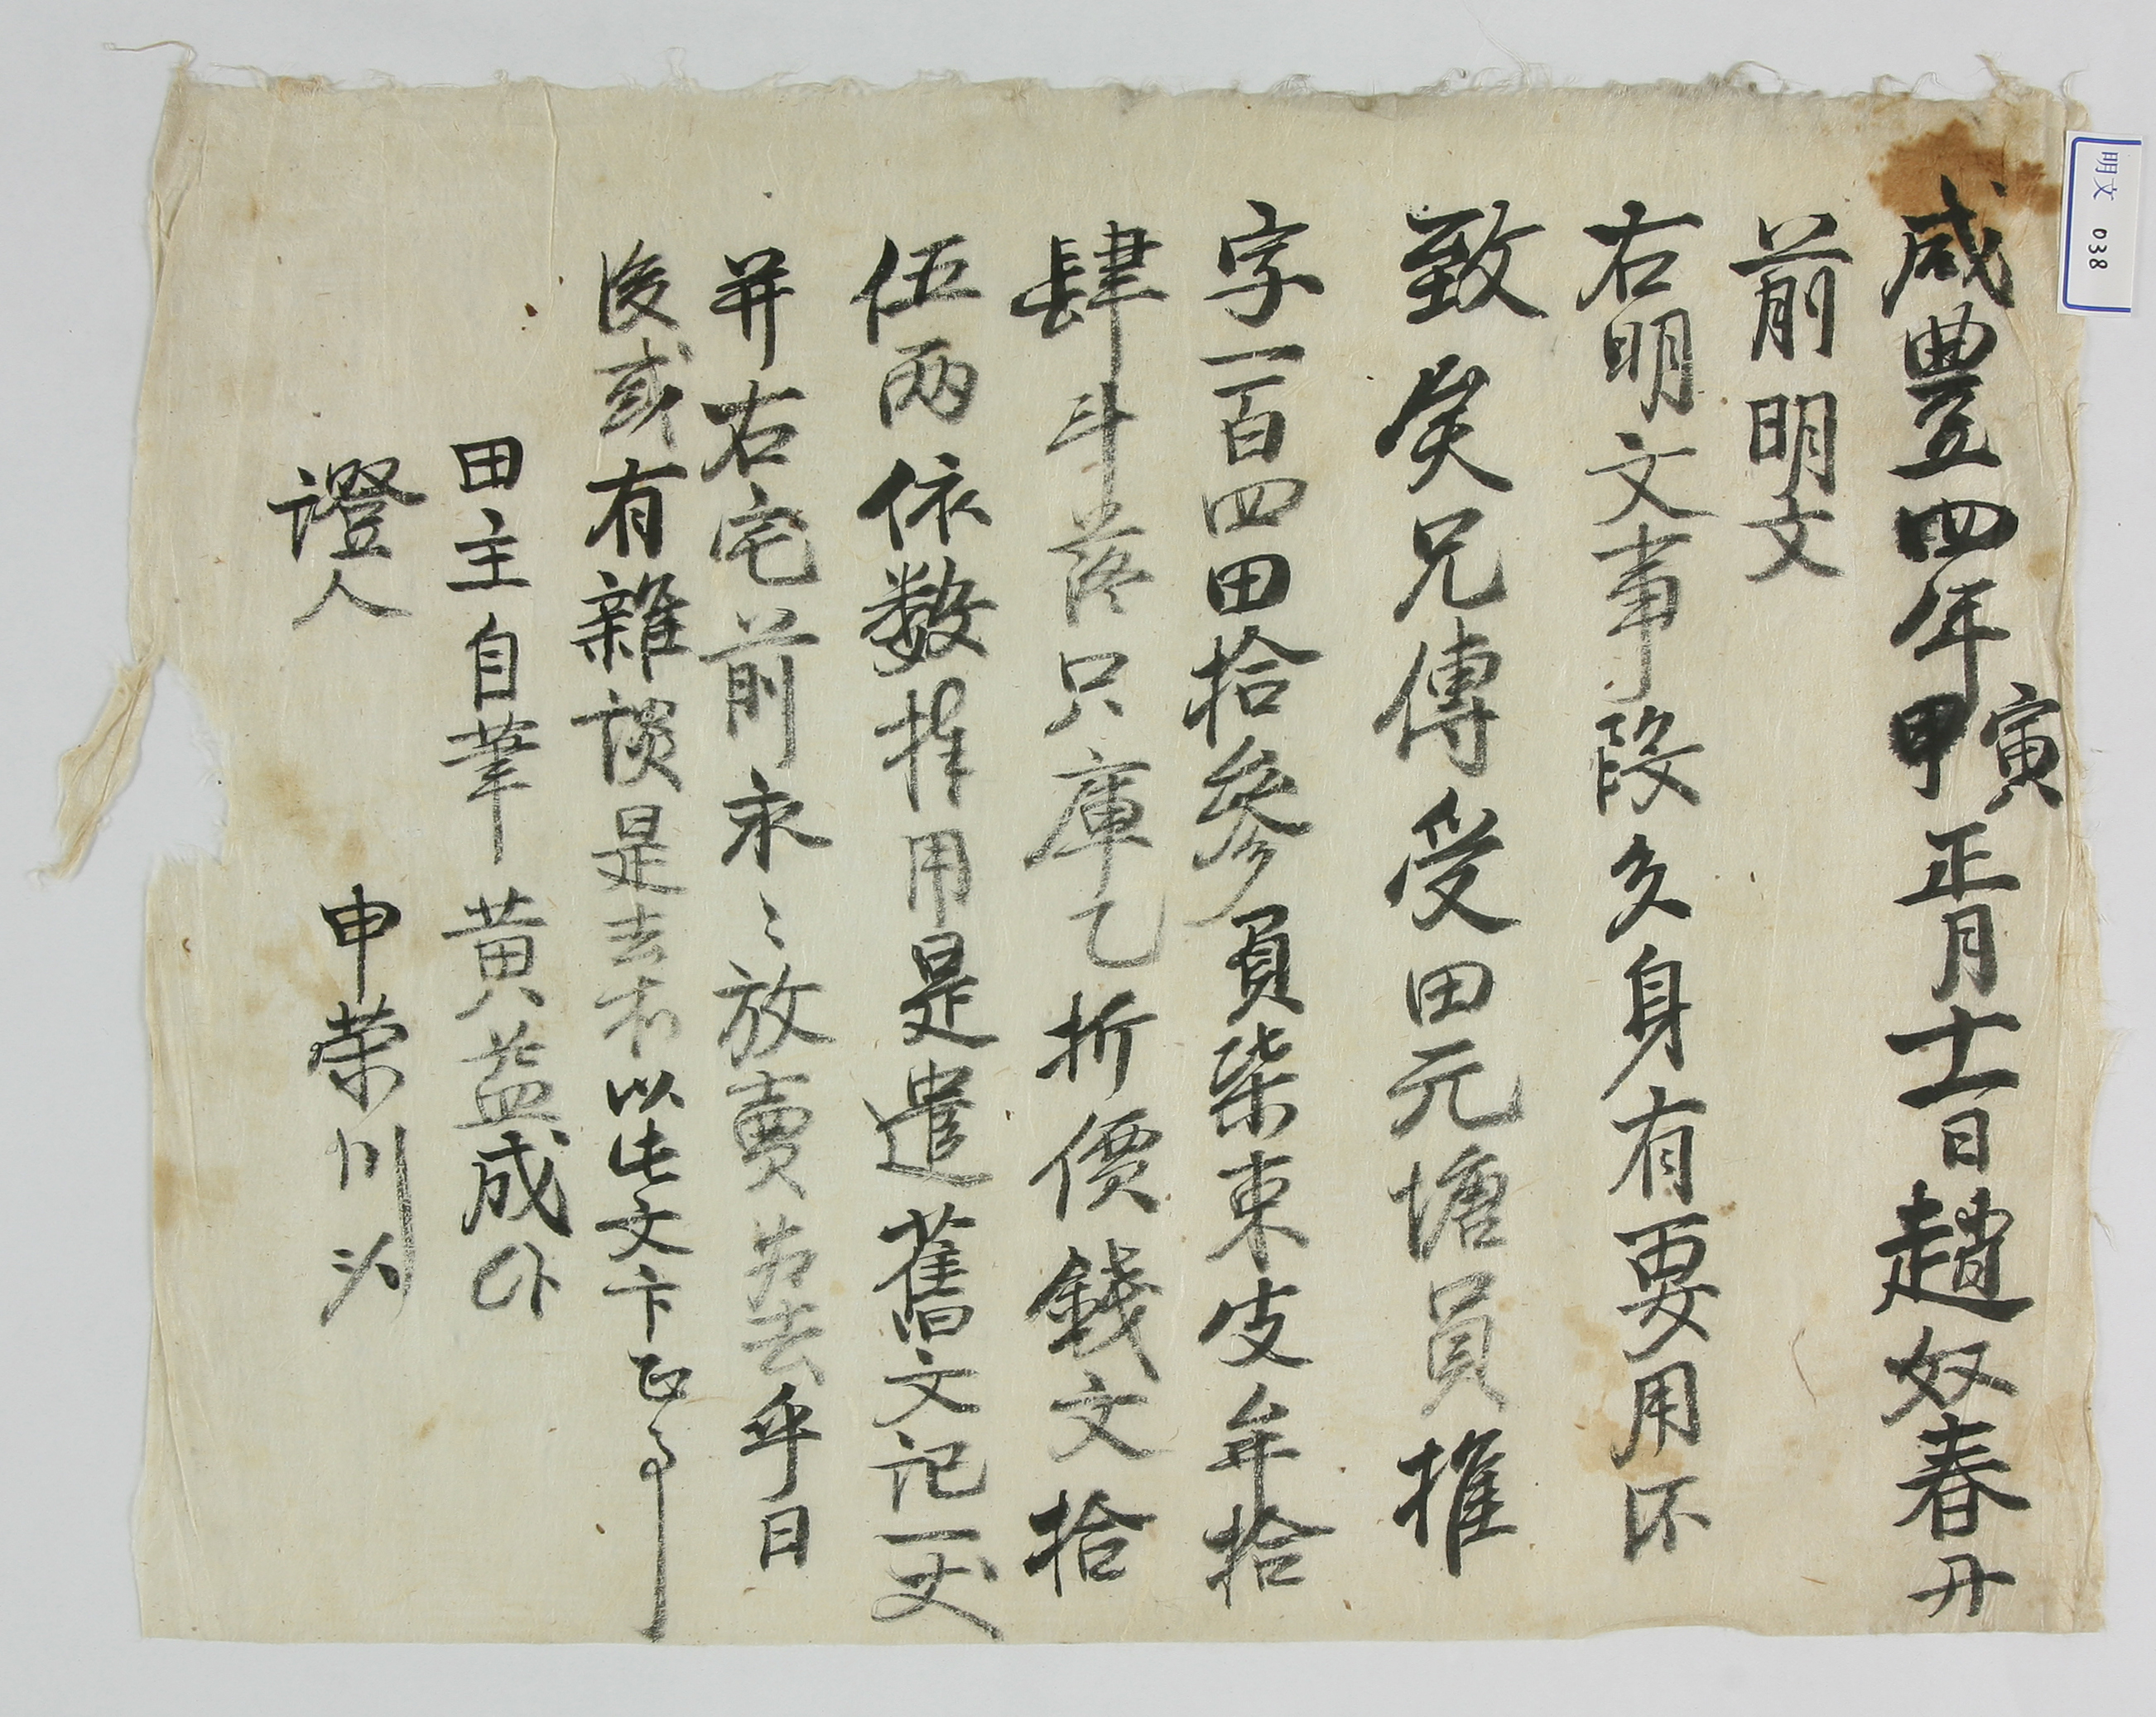 咸豊四年甲寅正月十一日趙奴春丹
前明文
右明文事段矣身有要用所
致矣兄傳受田元塘員推
字一百四田拾參負柒束皮牟拾
肆斗落只庫乙折價錢文拾
伍兩依數捧用是遣舊文記一丈
并右宅前永〻放賣爲去乎日
後或有雜談是去木以此文卞正事
田主自筆 黃益成
證人 申荣川
明文 038